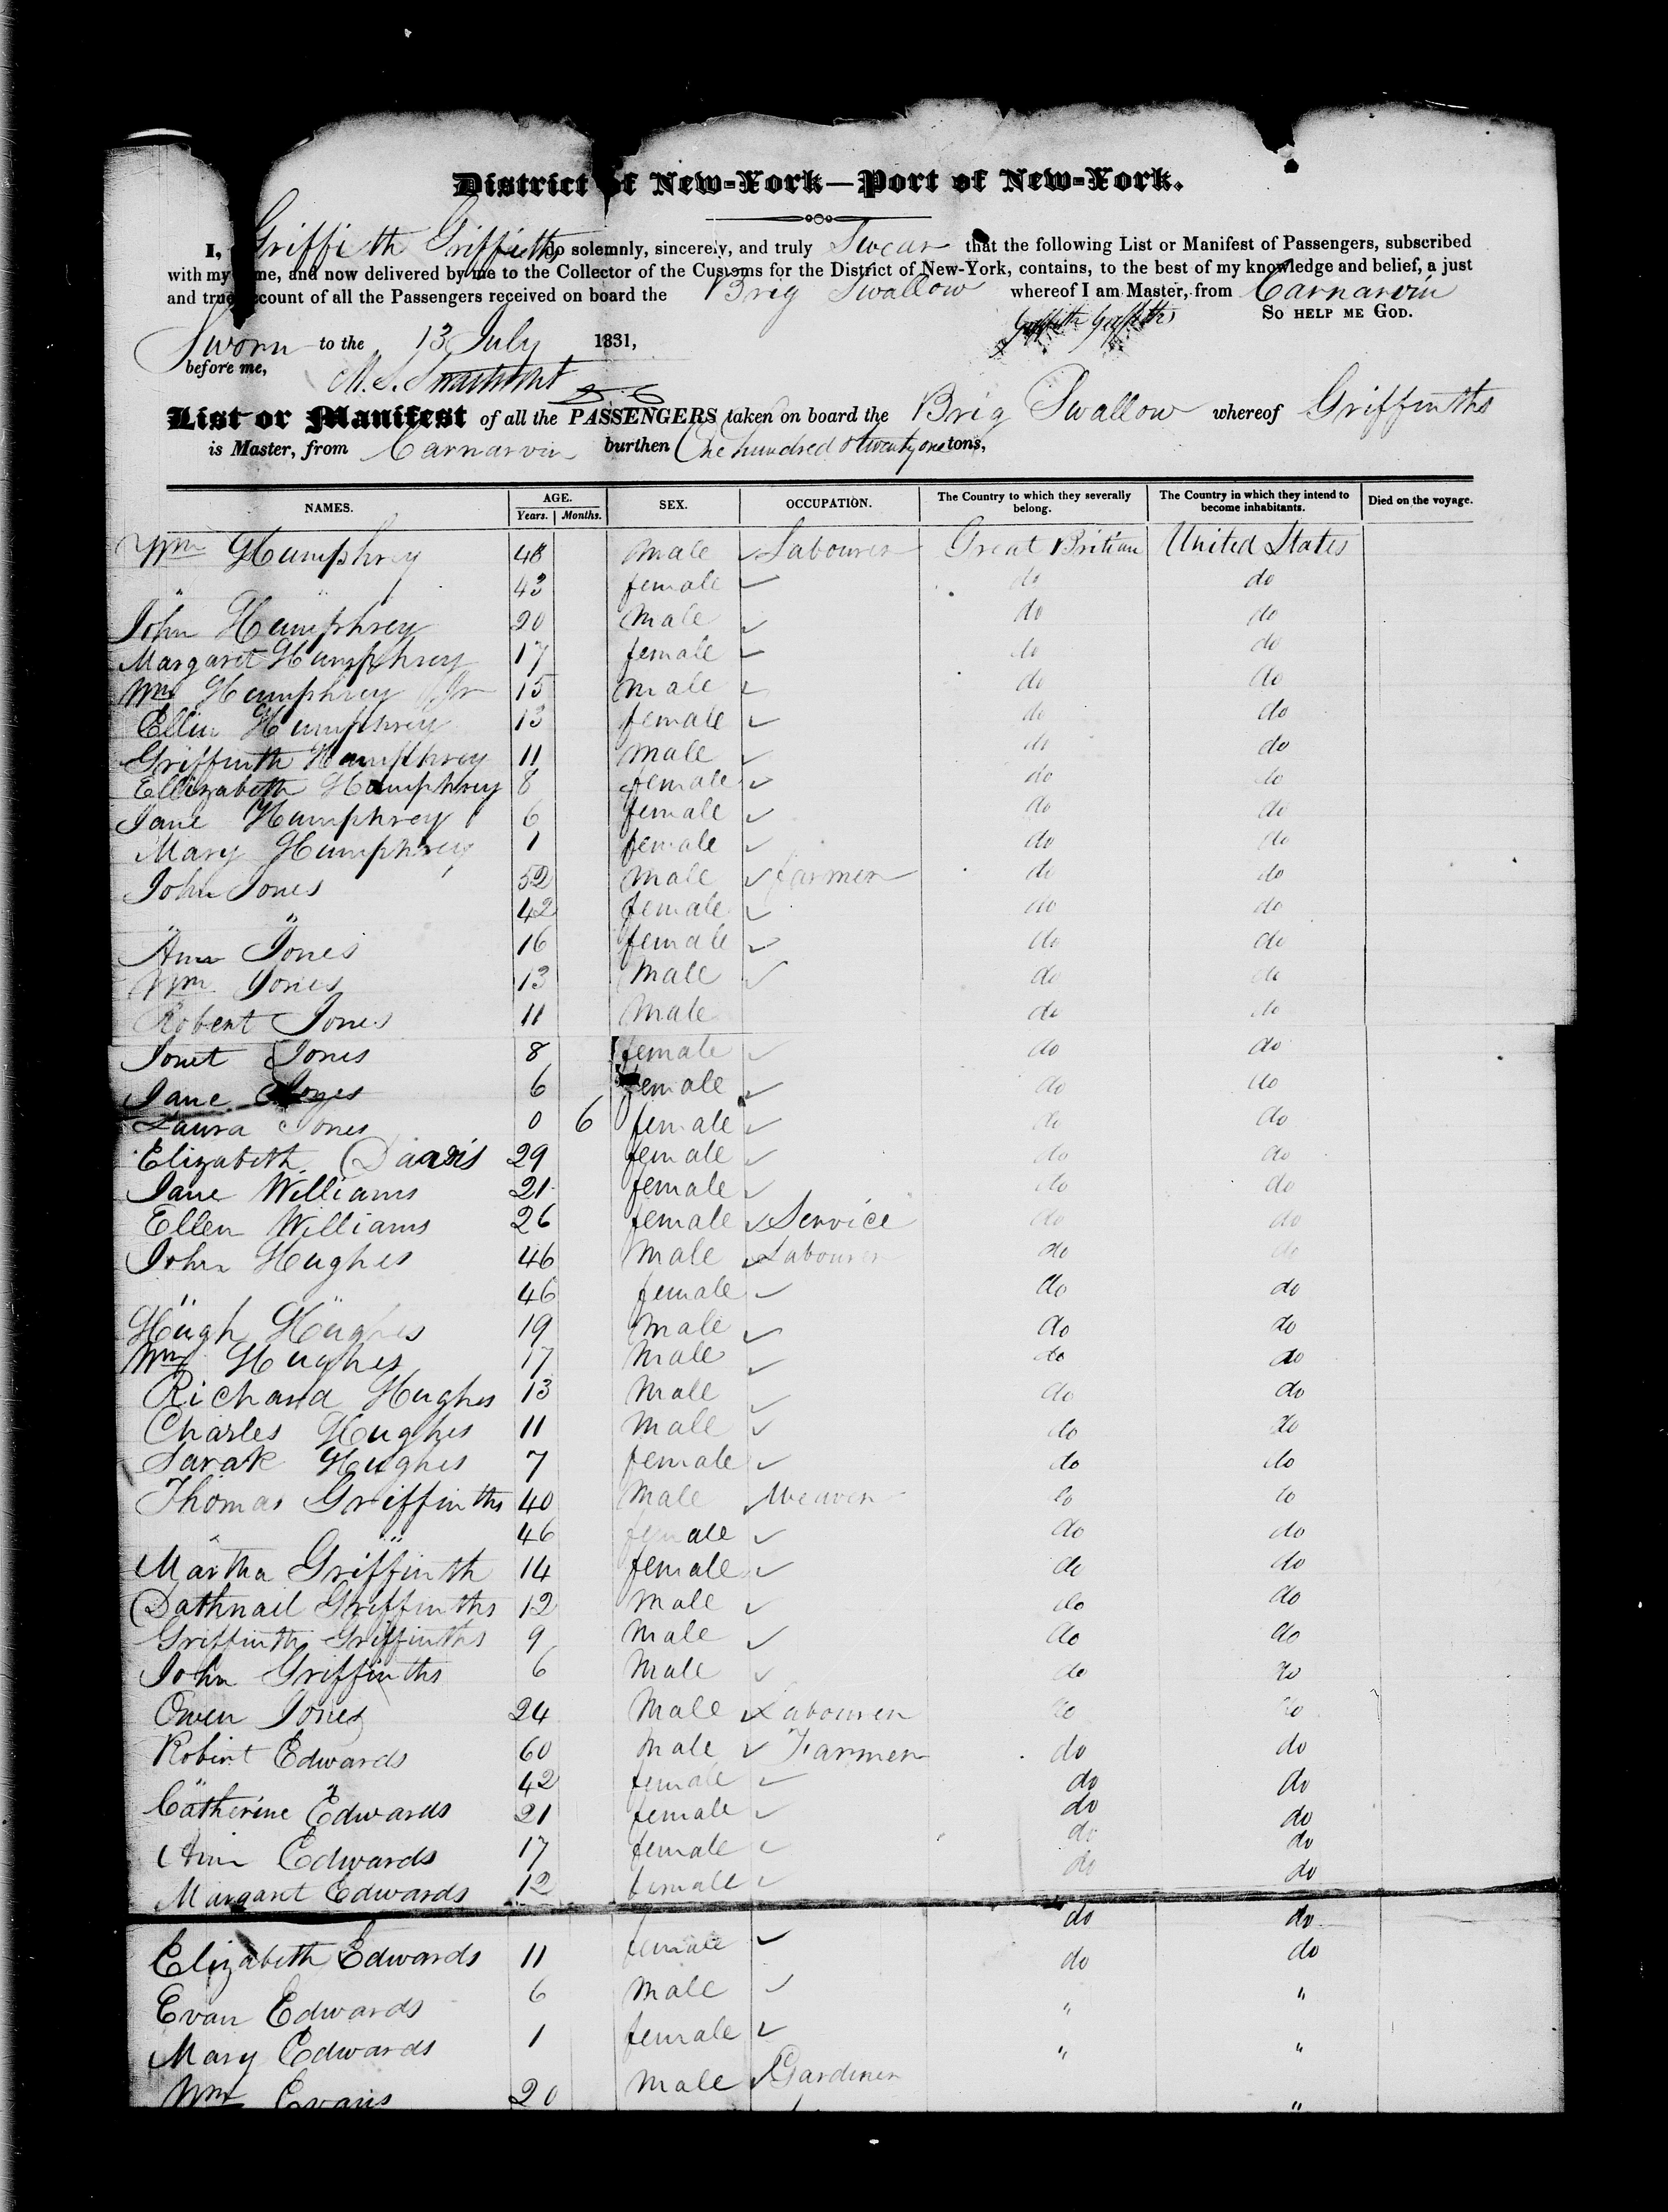 District of New-York—Port of New-York.
I, Griffith Griffiths do solemnly, sincerely, and truly Swear that the following List or Manifest of Passengers, subscribed
with my name, and now delivered by me to the Collector of the Customs for the District of New-York, contains, to the best of my knowledge and belief, a just
and true account of all the Passengers received on board the Brig Swallow whereof I am Master, from Carnarvin
So help me God.
Griffith Griffiths
Sworn to the 13 July 1831,
before me,
List or Manifest of all the PASSENGERS taken on board the Brig Swallow whereof Griffinths
is Master, from Carnarvin burthen One hundred & twenty one tons,
NAMES. AGE. Years. Months. SEX. OCCUPATION. The Country to which they severally belong. The Country in which they intend to become inhabitants. Died on the voyage.
Wm Humphrey 48 Male Labourer Great Britian United States
" " 43 female do do
John Humphrey 20 Male do do
Margaret Humphrey 17 female do do
Wm Humphrey Jr 15 Male do do
Ellin Humphrey 13 female do do
Griffinth Humphrey 11 Male do do
Ellizabeth Humphrey 8 female do do
Jane Humphrey 6 female do do
Mary Humphrey 1 female do do
John Jones 52 Male farmer do do
" " 42 female do do
Ann Jones 16 female do do
Wm Jones 13 Male do do
Robert Jones 11 Male do do
Jonet Jones 8 female do do
Jane Jones 6 female do do
Laura Jones 0 6 female do do
Elizabeth Daavis 29 female do do
Jane Williams 21 female do do
Ellen Williams 26 female Service do do
John Hughes 46 Male Labourer do do
" " 46 female do do
Hugh Hughes 19 Male do do
Wm Hughes 17 Male do do
Richard Hughes 13 Male do do
Charles Hughes 11 Male do do
Sarah Hughes 7 female do do
Thomas Griffinths 40 Male Weaver do do
" " 46 female do do
Martha Griffinth 14 female do do
Dathnail Griffinths 12 Male do do
Griffinth Griffinths 9 Male do do
John Griffinths 6 Male do do
Owen Jones 24 Male Labourer do do
Robint Edwards 60 Male Farmer do do
" " 42 female do do
Catherine Edwards 21 female do do
Ann Edwards 17 female do do
Margant Edwards 12 female do do
do do
Elizabeth Edwards 11 female do do
Evan Edwards 6 Male " "
Mary Edwards 1 female " "
Wm Evans 20 Male Gardiner "